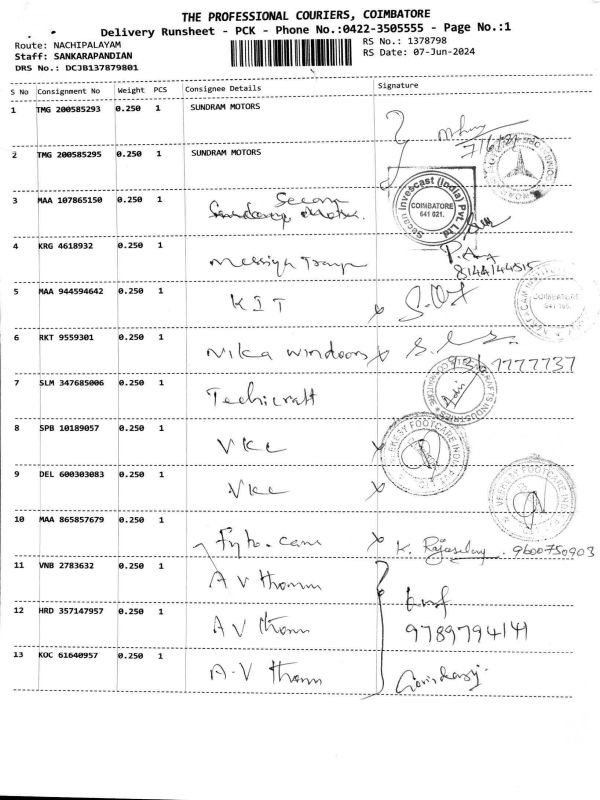 THE PROFESSIONAL COURIERS, COIMBATORE
Delivery Runsheet - PCK - Phone No.:0422-3505555 - Page No.:1
Route: NACHIPALAYAM
RS No.: 1378798
Staff: SANKARAPANDIAN
RS Date: 07-Jun-2024
DRS No.: DCJB137879801
S No Consignment No Weight PCS Consignee Details Signature
1 TMG 200585293 0.250 1 SUNDRAM MOTORS
2 TMG 200585295 0.250 1 SUNDRAM MOTORS
3 MAA 107865150 0.250 1 Secan
COIMBATORE
641 021.
Secan Invescast (India) Pvt. Ltd
4 KRG 4618932 0.250 1
8144144515
5 MAA 944594642 0.250 1 KIT
COIMBATORE
6 RKT 9559301 0.250 1 Nika Windoors
7 SLM 347685006 0.250 1 Techicraft
8 SPB 10189057 0.250 1 VKC
9 DEL 600303083 0.250 1 VKC
VEEKESY FOOTCARE
10 MAA 865857679 0.250 1
9600750903
11 VNB 2783632 0.250 1 A V Thomm
12 HRD 357147957 0.250 1 A V Thomm
9789794141
13 KOC 61640957 0.250 1 A.V Thomm